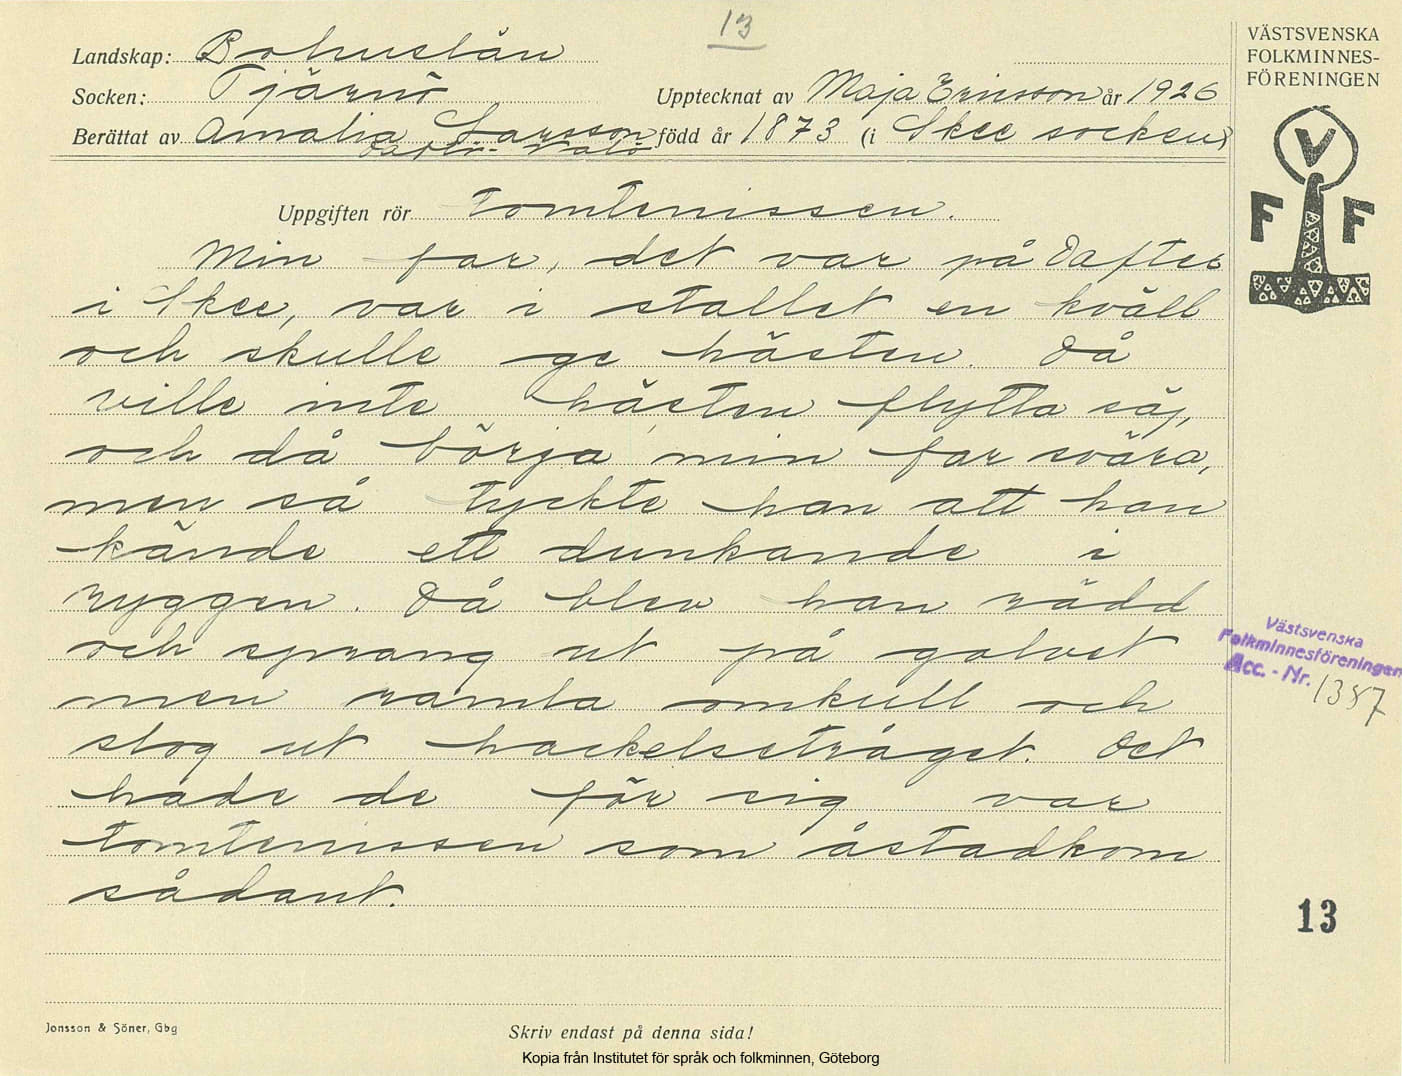 13
Landskap: Bohuslän
Socken: Tjärnö
Upptecknat av Maja Ericsson år 1926
Berättat av Amalia Larsson född år 1873 (i Skee socken)
Uppgiften rör tomtenissen.
Min far, det var på Dafter
i Skee, var i stallet en kväll
och skulle ge hästen. Då
ville inte hästen flytta säj,
och då börja min far svära,
men så tyckte han att han
kände ett dunkande i
ryggen. Då blev han rädd
och sprang ut på golvet
men ramla omkull och
slog ut hackelsetråget. Det
hade de för sig var
tomtenissen som åstadkom
sådant.
VÄSTSVENSKA
FOLKMINNES-
FÖRENINGEN
V
F F
Västsvenska
Folkminnesföreningen
Acc. - Nr. 1387
13
Jonsson & Söner, Gbg
Skriv endast på denna sida!
Kopia från Institutet för språk och folkminnen, Göteborg